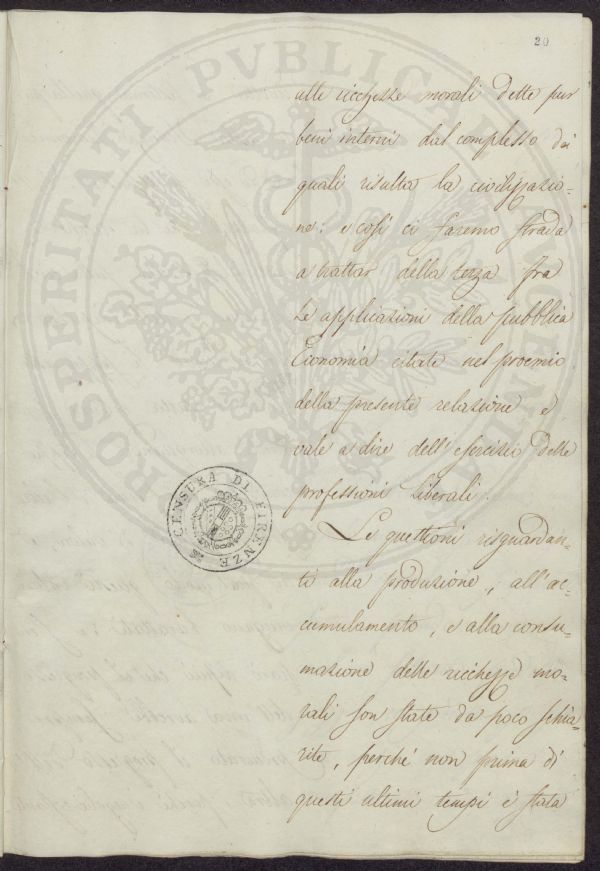 20
alle ricchezze morali dette pur
beni interni dal complesso dei
quali risulta la civilizzazio-
ne: e così ci faremo strada
a trattar della terza fra
le applicazioni della pubblica
Economia citate nel proemio
della presente relazione e
vale a dire dell'esercizio delle
professioni liberali.
Le questioni risguardan-
ti alla produzione, all'ac-
cumulamento, e alla consu-
mazione delle ricchezze mo-
rali son state da poco schia-
rite, perché non prima di
questi ultimi tempi è stata
CENSURA DI FIRENZE
PROSPERITATI PVBLICAE